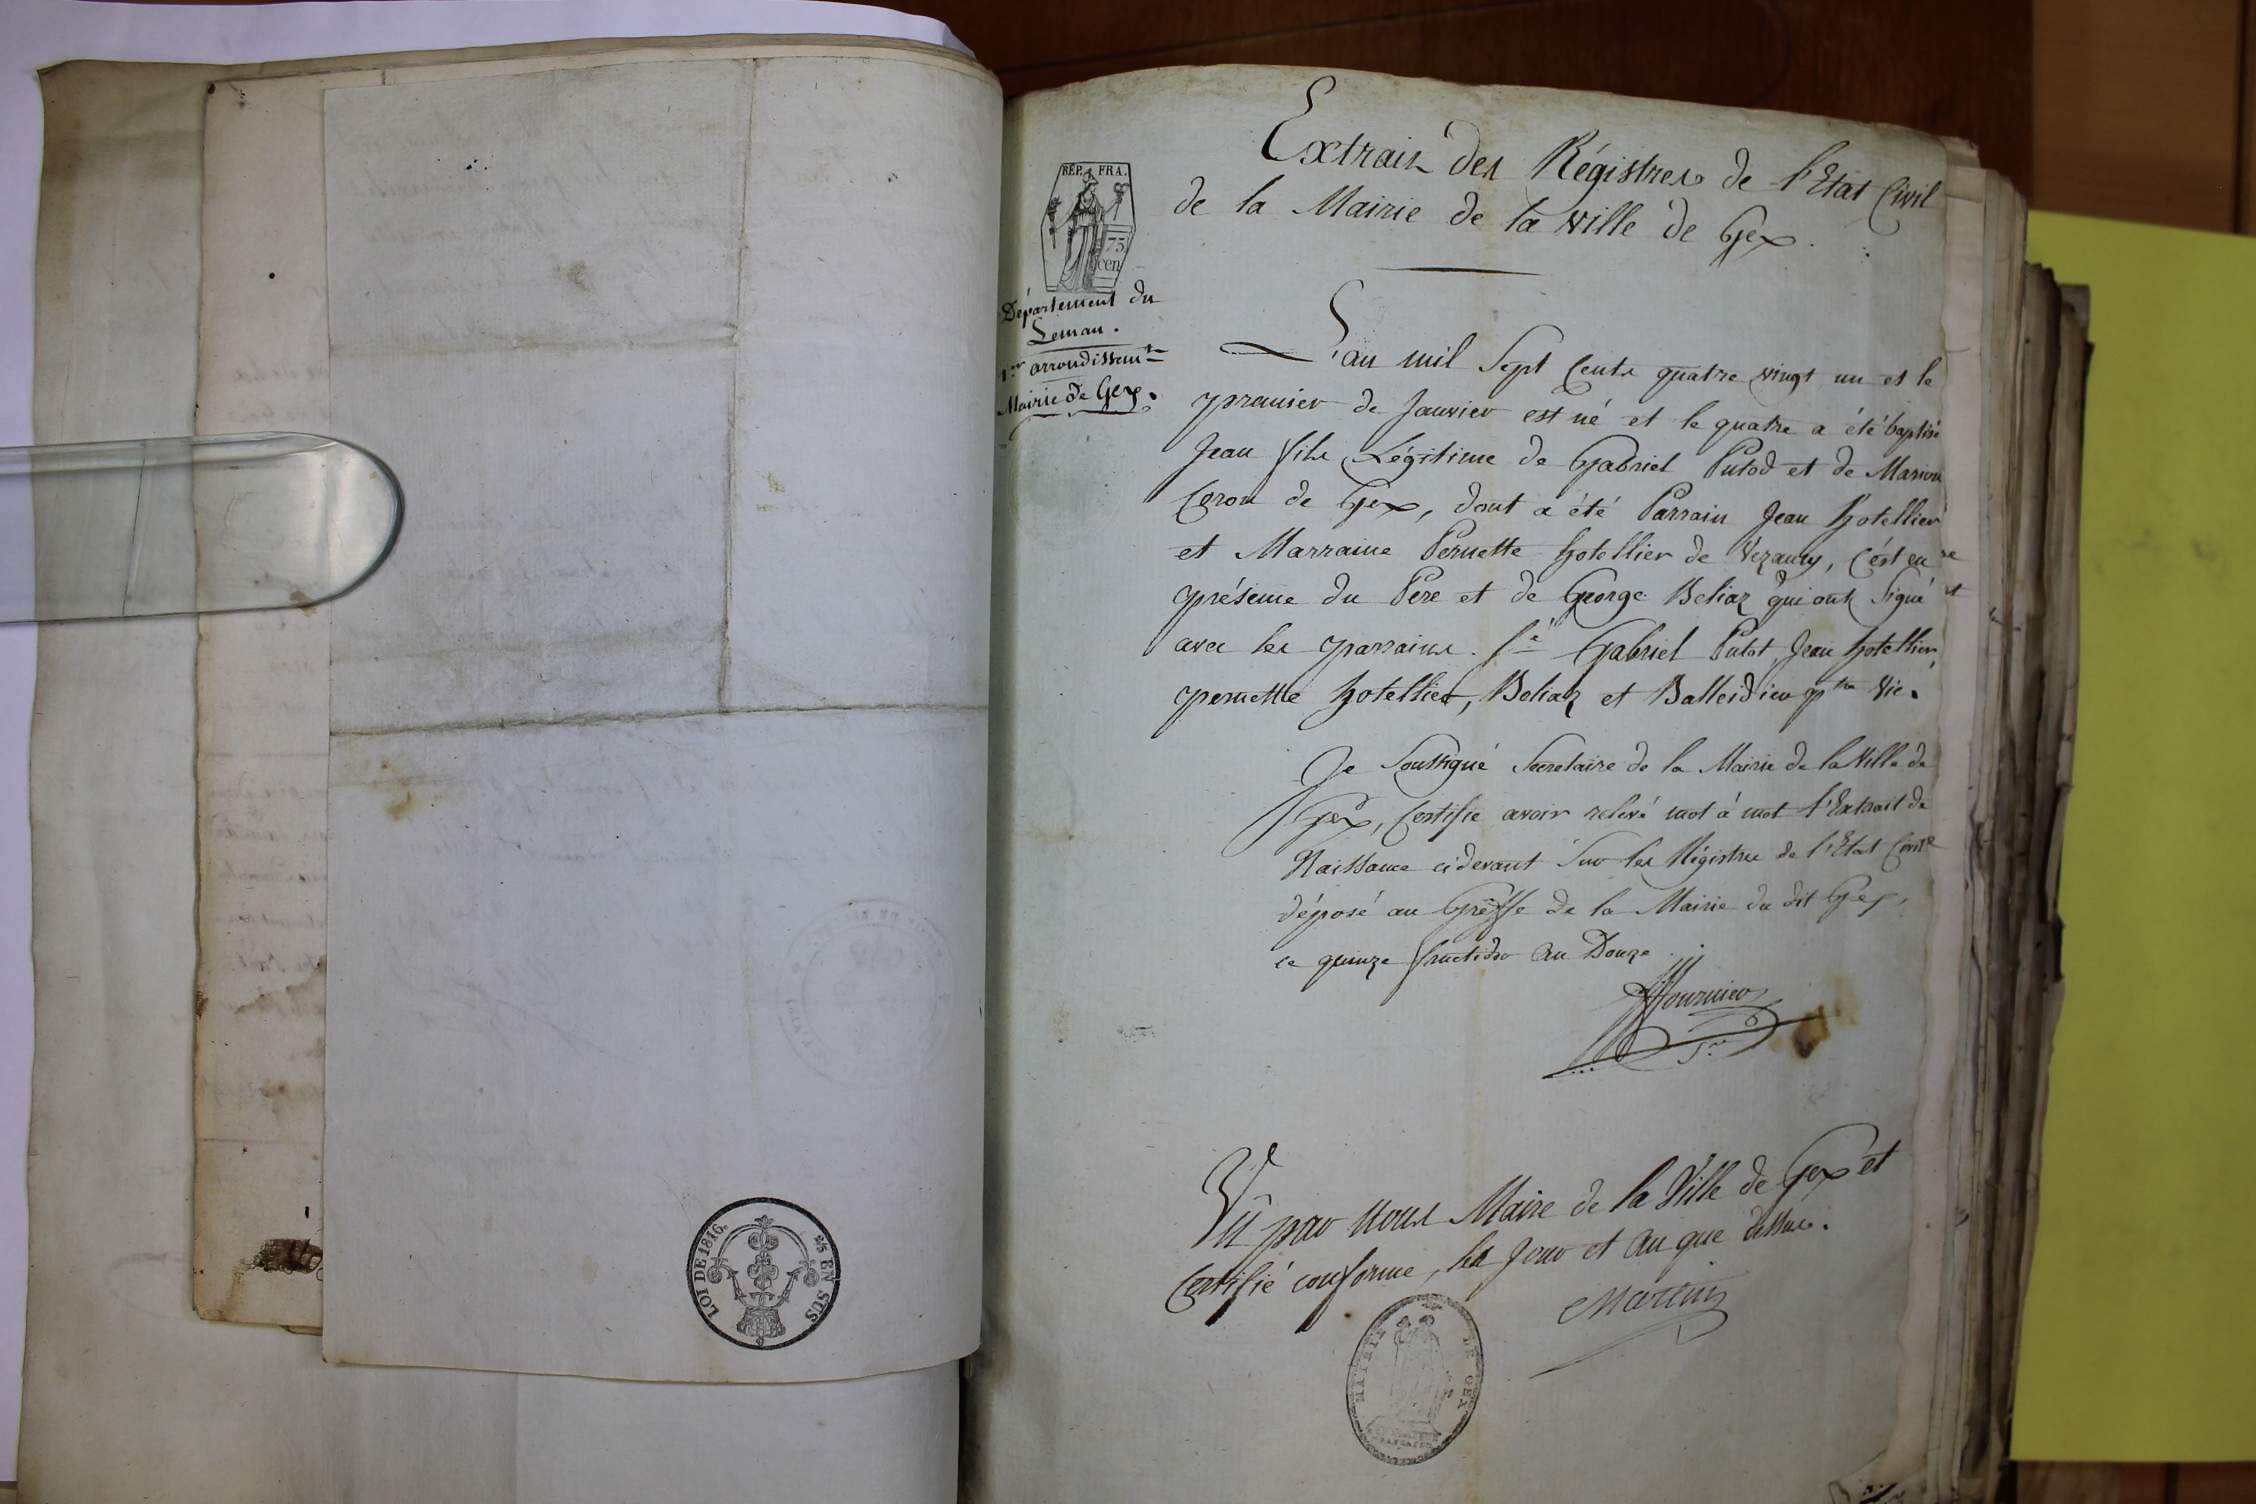 LOI DE 1816.
2/5 EN SUS
RÉP. FRA.
75
cen
Département du
Leman.
1er arrondissemt
Mairie de Gex.
Extrait des Régistres de l'Etat Civil
de la Mairie de la ville de Gex.
L'an mil Sept Cents quatre vingt un et le
premier de Janvier est né et le quatre a été baptisé
Jean fils Légitime de Gabriel Putod et de Marion
Coron de Gex, dont a été Parrain Jean hotellier
et Marraine Pernette hotellier de Vezancy, C'ést en
présence du Pere et de George Beliaz qui ont Signé
avec les parrains. Sé Gabriel Putot, Jean hotellier,
pernette hotellier, Beliaz et Balleidieu ptre Vic.
Je Soussigné Secretaire de la Mairie de la Ville de
Gex, Certifie avoir relévé mot à mot l'Extrait de
Naissance cidevant Sur les Régistres de l'Etat
déposé au Greffe de la Mairie du dit Gex,
ce quinze fructidor an Douze.
Fournier
Sre
Vû par nous Maire de la Ville de Gex et
Certifié conforme, les Jour et an que dessus.
Martin
MAIRIE DE GEX